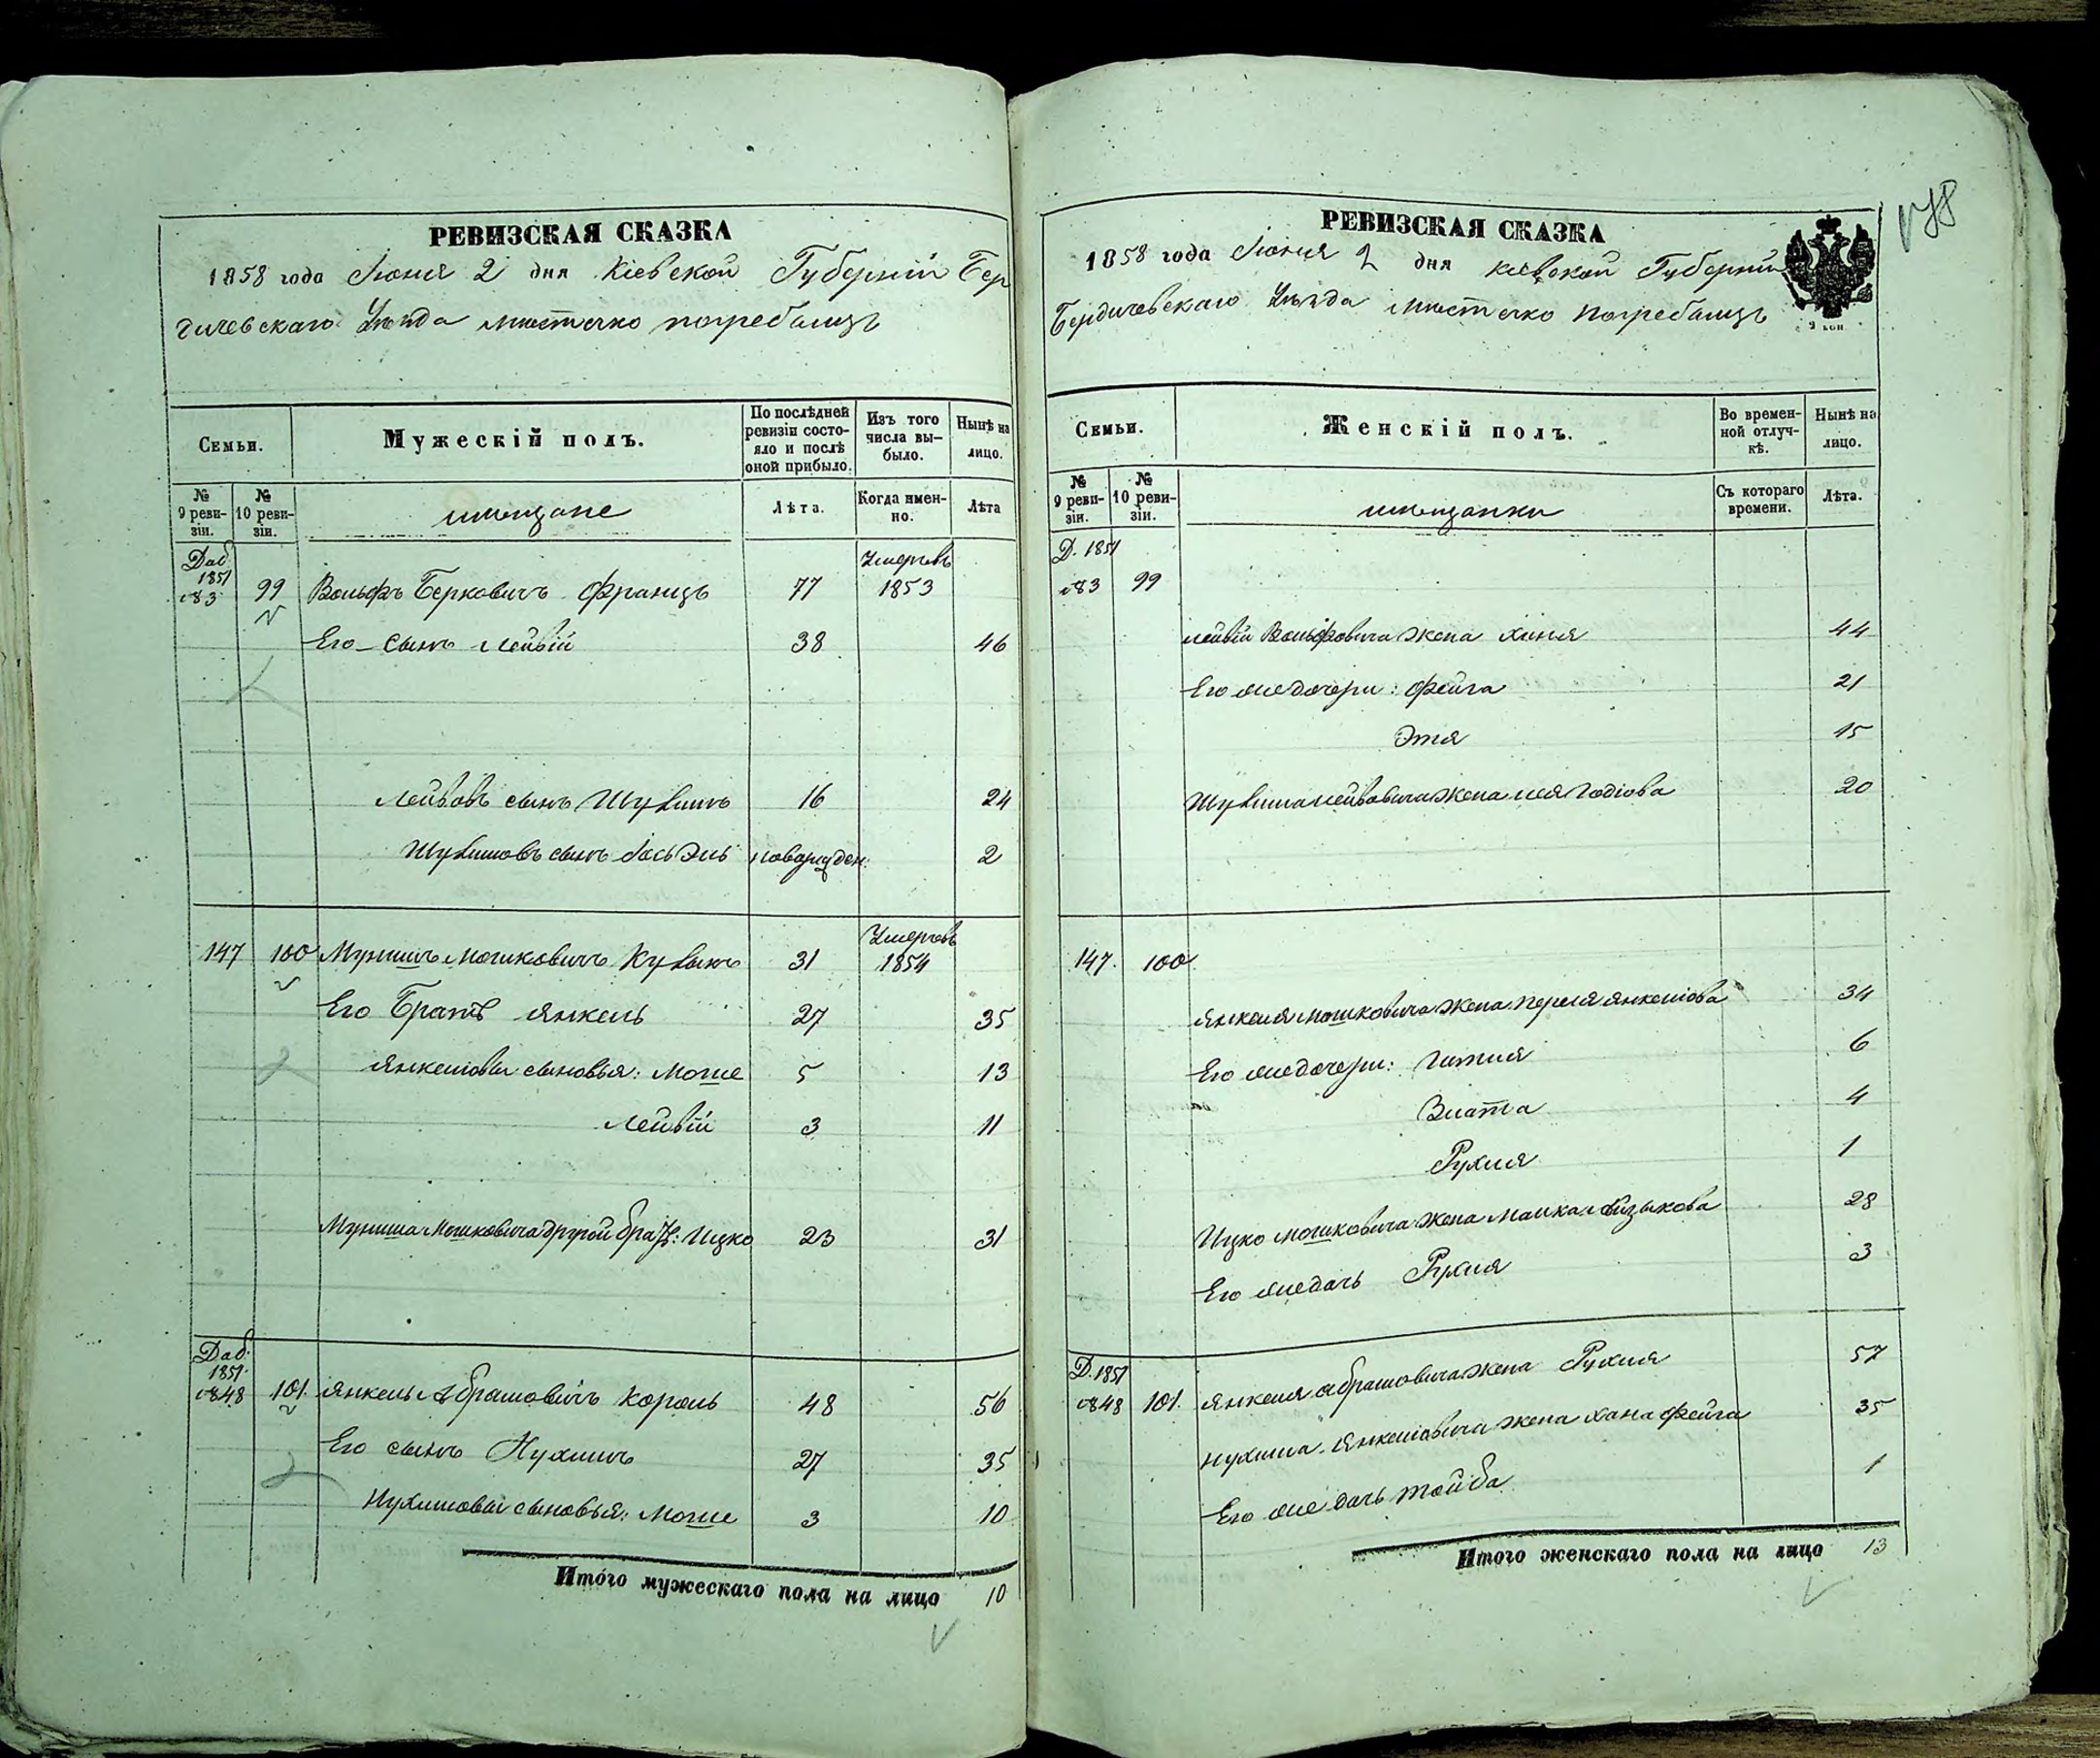 РЕВИЗСКАЯ СКАЗКА
1858 года Іюня 2 дня Кіевской Губерніи Бер
дичевскаго Уѣзда мѣстечко погребищъ
Семьи.
Мужескій полъ.
По послѣдней ревизіи состояло и послѣ оной прибыло.
Изъ того числа вы-было.
Нынѣ на лицо.
№ 9 реви-зіи.
№ 10 реви-зіи.
мещане
Лѣта.
Когда имен-но.
Лѣта
Доб. 1851 №83 99 Вольфъ Берковичъ Францъ 77 Умеръ въ 1853
Его сынъ Лейвій 38 46
Лейвовъ сынъ Шулимъ 16 24
Шулимовъ сынъ Іось Эль новорожден: 2
147 100 Мунишъ Мошковичъ 31 Умеръ въ 1854
Его Братъ Янкель 27 35
Янкеліовы сыновья: Моше 5 13
Лейвій 3 11
Муниша Мошковича другой братъ: Ицко 23 31
Доб. 1851 №848 101. Янкель Абрамовичъ Король 48 56
Его сынъ Нухимъ 27 35
Нухимовы сыновья: Моше 3 10
Итого мужескаго пола на лицо 10
РЕВИЗСКАЯ СКАЗКА
1858 года Іюня 2 дня Кіевской Губерніи
Бердичевскаго Уѣзда мѣстечко Погребищъ
Семьи.
Женскій полъ.
Во времен-ной отлуч-кѣ.
Нынѣ на лицо.
№ 9 реви-зіи.
№ 10 реви-зіи.
мещанки
Съ котораго времени.
Лѣта.
Д. 1851 №83 99
Лейвіи Вольфовича жена Хиня 44
Его же дочери: Фейга 21
Этя 15
Шулима Лейвовича жена Лея Годіова 20
147. 100
Янкеля Мошковича жена Перля Янкеліова 34
Его же дочери: Гитля 6
Злата 4
Рухля 1
Ицко Мошковича жена Малка 28
Его же дочь Рухля 3
Д. 1851 №848 101. Янкеля Абрамовича жена Рухля 57
Нухима Янкеліовича жена Хана Фейга 35
Его же дочь Тойба 1
Итого женскаго пола на лицо 13